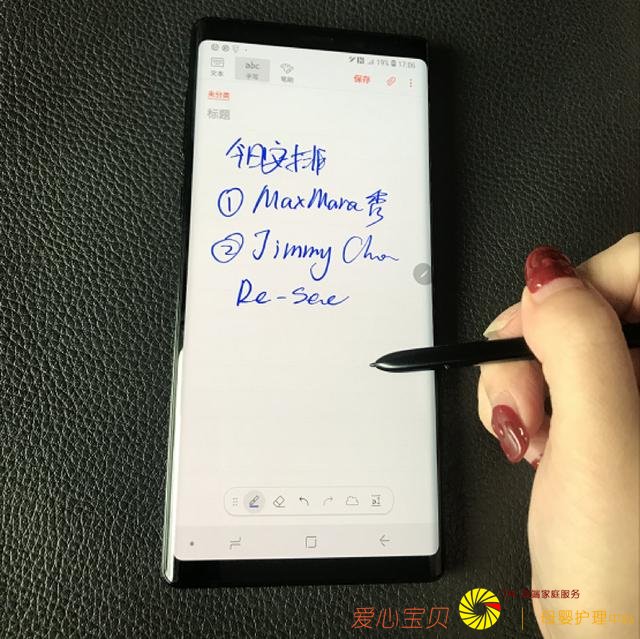 19% 17:06
文本
abc
手写
笔刷
保存
未分类
标题
今日安排
① MaxMara秀
② Jimmy Choo
Re-See
爱心宝贝
端家庭服务
母婴护理